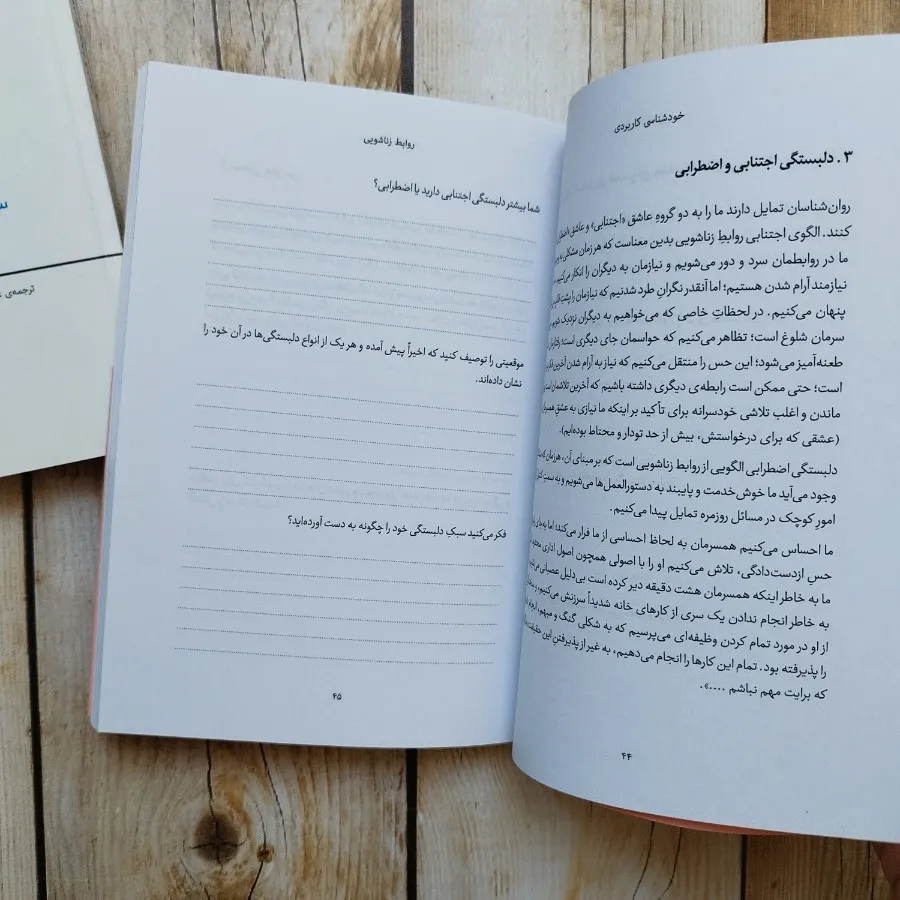 خودشناسی کاربردی
۳. دلبستگی اجتنابی و اضطرابی
روان‌شناسان تمایل دارند ما را به دو گروهِ عاشق «اجتنابی» و عاشق
کنند. الگوی اجتنابی روابطِ زناشویی بدین معناست که هر زمان مشکلی
ما در روابطمان سرد و دور می‌شویم و نیازمان به دیگران را انکار می‌کنیم
نیازمند آرام شدن هستیم؛ اما آنقدر نگرانِ طرد شدنیم که نیازمان را پشتِ
پنهان می‌کنیم. در لحظاتِ خاصی که می‌خواهیم به دیگران نزدیک
سرمان شلوغ است؛ تظاهر می‌کنیم که حواسمان جای دیگری است؛
طعنه‌آمیز می‌شود؛ این حس را منتقل می‌کنیم که نیاز به آرام شدن آخرین
است؛ حتی ممکن است رابطه‌ی دیگری داشته باشیم که آخرین تلاشمان
ماندن و اغلب تلاشی خودسرانه برای تأکید بر اینکه ما نیازی به عشقِ
(عشقی که برای درخواستش، بیش از حد تودار و محتاط بوده‌ایم).
دلبستگی اضطرابی الگویی از روابط زناشویی است که بر مبنای آن، هر زمان
وجود می‌آید ما خوش‌خدمت و پایبند به دستورالعمل‌ها می‌شویم و به سمتِ
امورِ کوچک در مسائل روزمره تمایل پیدا می‌کنیم.
ما احساس می‌کنیم همسرمان به لحاظ احساسی از ما فرار می‌کند؛ اما به‌جای
حسِ ازدست‌دادگی، تلاش می‌کنیم او را با اصولی همچون اصول اداری
ما به خاطر اینکه همسرمان هشت دقیقه دیر کرده است بی‌دلیل عصبانی
به خاطر انجام ندادن یک سری از کارهای خانه شدیداً سرزنش می‌کنیم
از او در مورد تمام کردن وظیفه‌ای می‌پرسیم که به شکلی گنگ و مبهم
را پذیرفته بود. تمام این کارها را انجام می‌دهیم، به غیر از پذیرفتنِ این
که برایت مهم نباشم ....».
۴۴
روابط زناشویی
شما بیشتر دلبستگی اجتنابی دارید یا اضطرابی؟
موقعیتی را توصیف کنید که اخیراً پیش آمده و هر یک از انواع دلبستگی‌ها در آن خود را
نشان داده‌اند.
فکر می‌کنید سبکِ دلبستگی خود را چگونه به دست آورده‌اید؟
۴۵
ترجمه‌ی